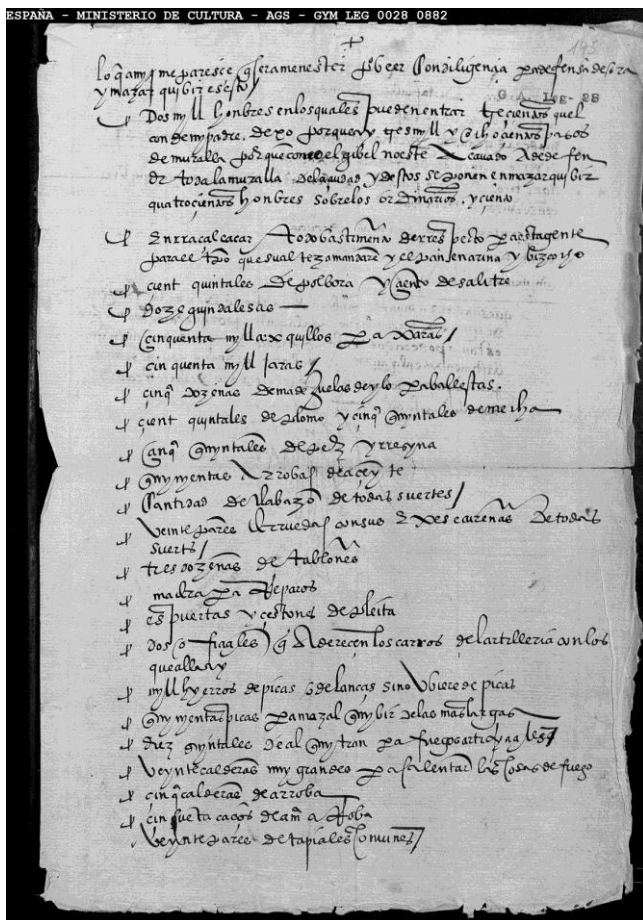 ESPAÑA - MINISTERIO DE CULTURA - AGS - GYM LEG 0028 0882
193
lo q̃ a my me paresce q̃ sera menester prober con diligençia para defensa de
y mazarquibir es esto
G A Leg- 28
Dos myll honbres en los quales pueden entrar quel
conde my padre dexo porque ay tres myll y ochoçientos pasos
de muralla porque como el gibel no este acavado a de defen
der toda la muralla de la çiudad y destos se ponen en mazarquibir
quatroçientos honbres sobre los ordinarios
todo bastimento de rrespeto para esta gente
para el tpo que su al teza mandare y el pan sea en arina y bizcocho
çient quintales de polbora y çiento de salitre
doze guindalesas
cinquenta myll para xaras
cinquenta myll jaras
cinq̃ dozenas de madexuelas de ylo pa ballestas
çient quintales de plomo y cinq̃ quyntales de mecha
cinq̃ quyntales de pez y rresyna
quynyentas arrobas de açeyte
Cantidad de clabazon de todas suertes
veinte pares de rruedas con sus exes e cureñas de todas
suertes
tres dozenas de tablones
madera pa rreparos
espuertas y cestones de pleita
dos ofiçiales q̃ aderecen los carros del artilleria con los
que alla ay
myll hyerros de picas o de lancas si no ubiere de picas
quynyentas picas pa mazalquybir de las mas largas
diez quyntales de alquytran pa fuegos artifiçiales
veynte calderas muy grandes pa calentar las cosas de fuego
cinq̃ calderas de arroba
cinquenta caços de a arroba
veynte pares de tapiales comunes